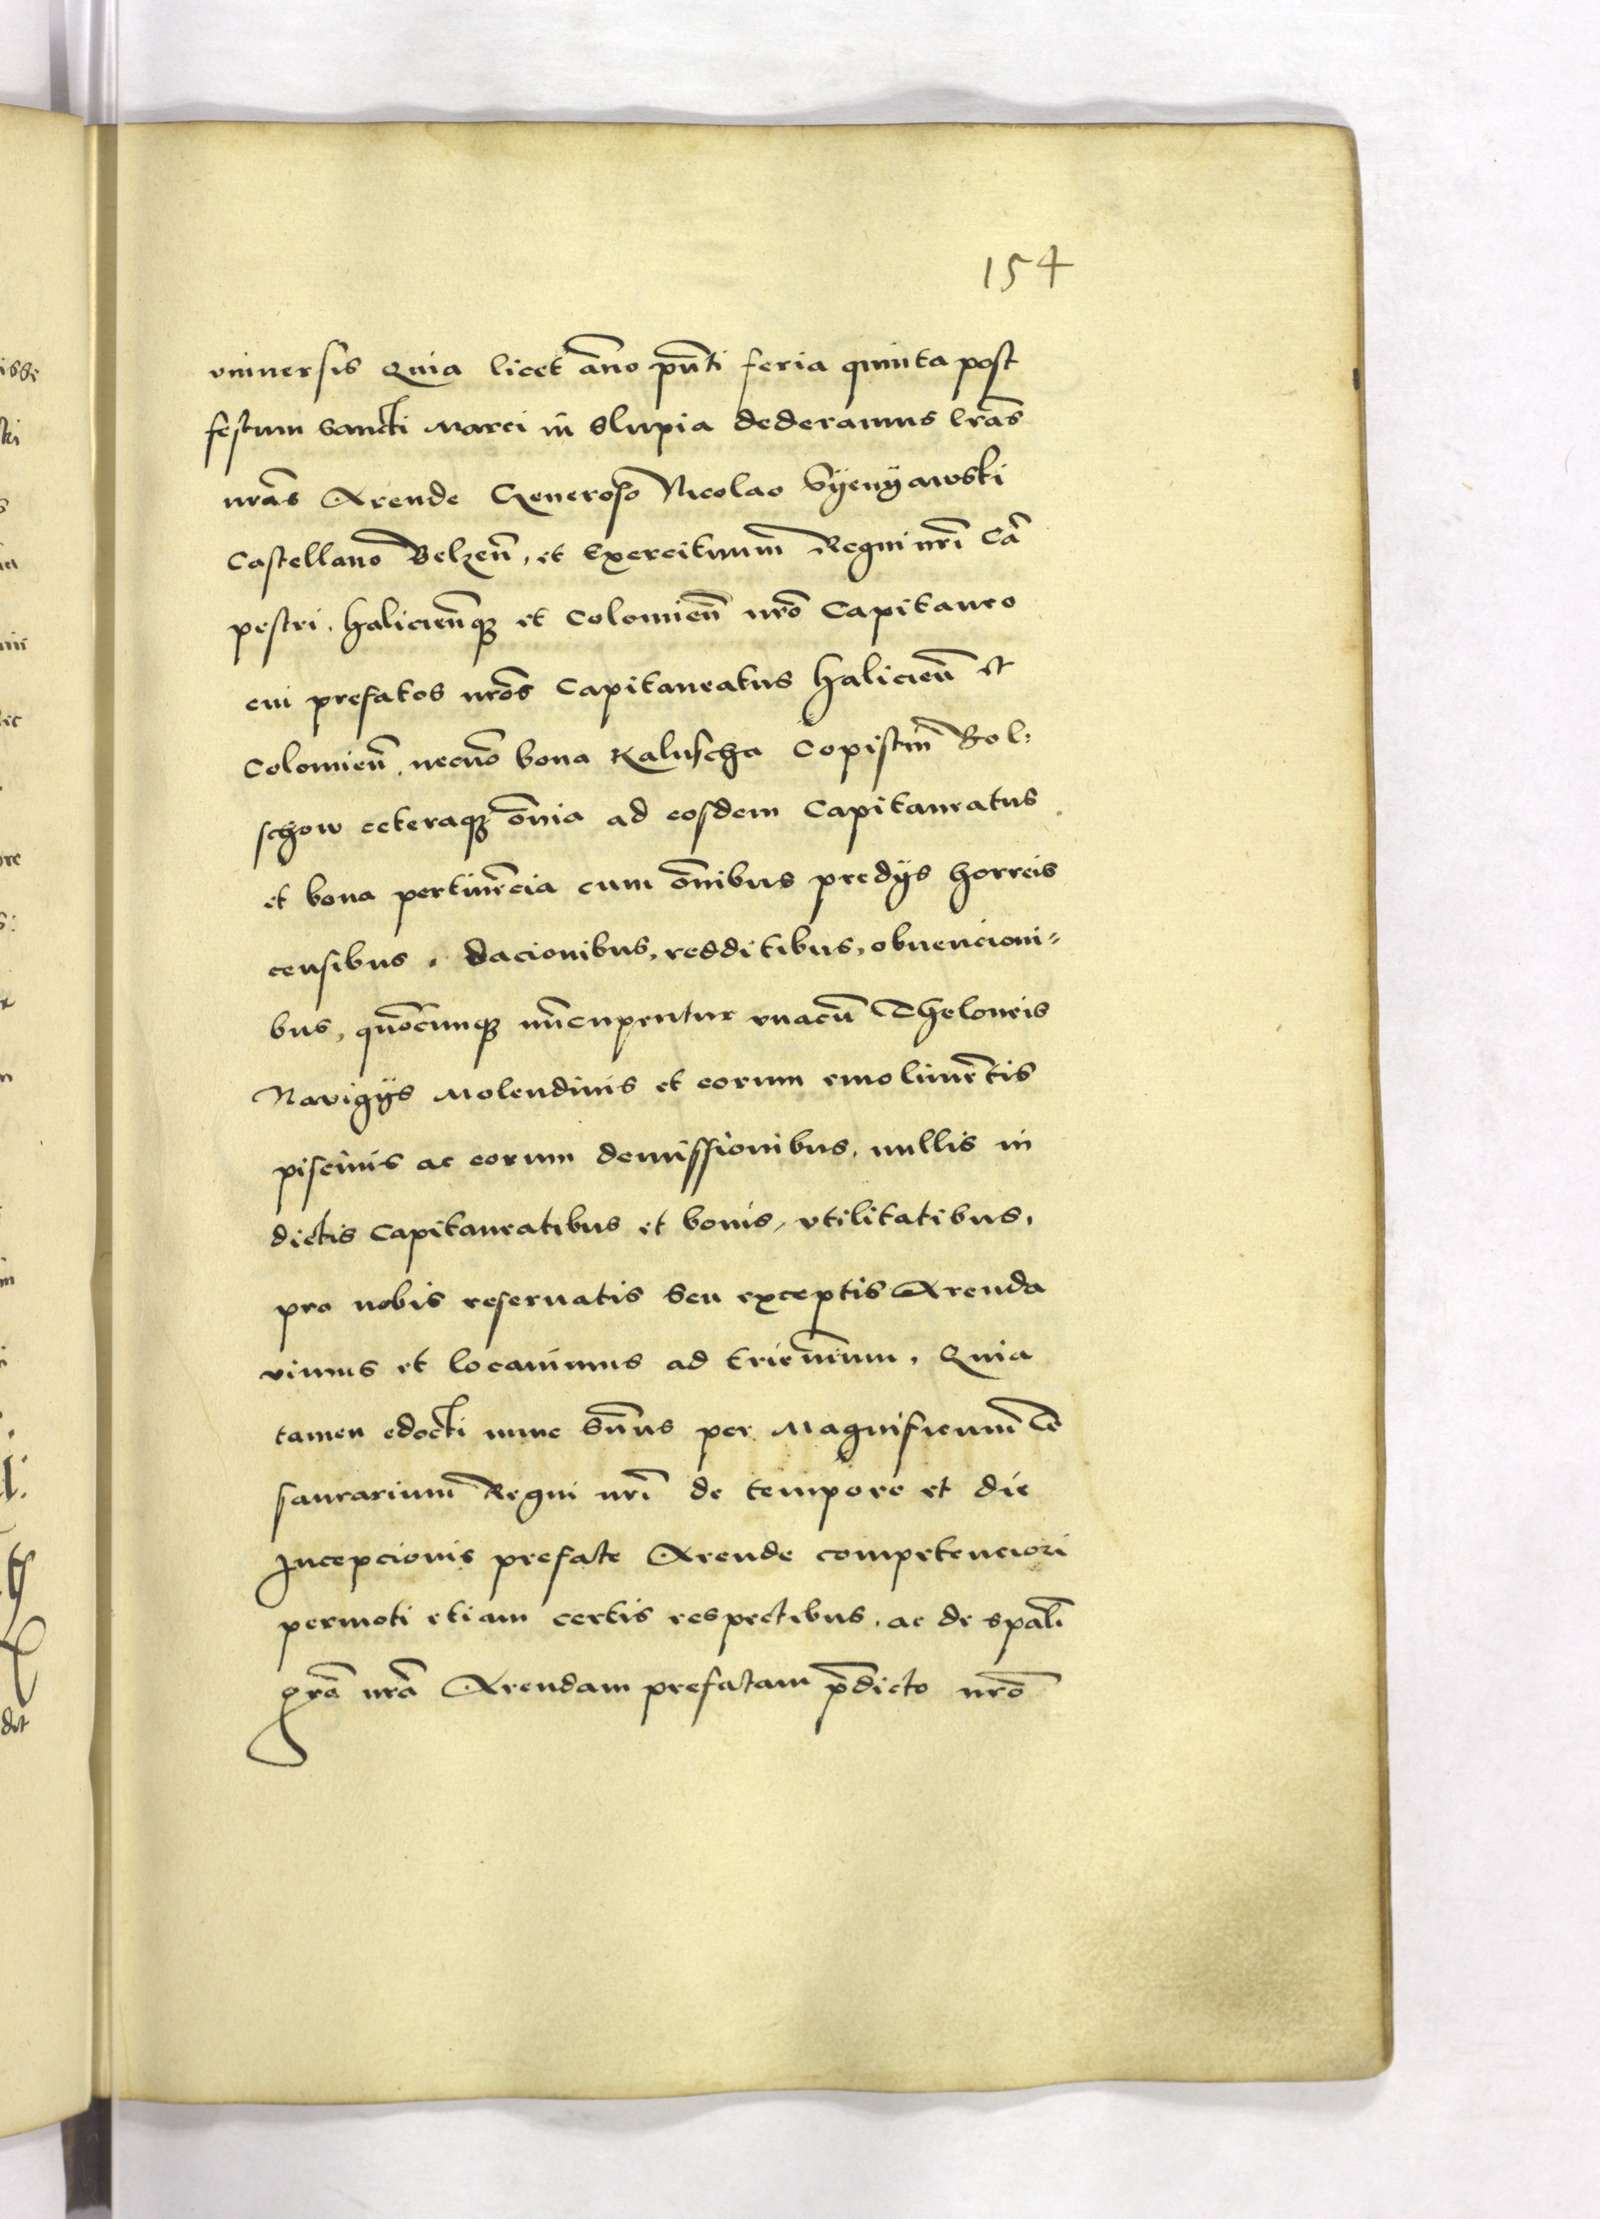 154
vniuersis Quia licet āno pn̄ti feria quinta post
festum Sancti Marci in Slupia dederamus lr̄as
nr̄as Arende Generoso Nicolao Syenyawski
Castellano Belzen̄, et Exercituum Regni nr̄i Cā
pestri, halicien̄qȝ et Colomien̄ nr̄o Capitaneo
cui prefatos nr̄os Capitaneatus halicien̄ et
Colomien̄, necnō bona Kaluscha Copistin̄ Bol:
schow ceteraqȝ ōnia ad eosdem Capitaneatus
et bona pertinēcia cum ōnibus predijs horreis
censibus, dacionibus, redditibus, obuencioni=
bus, quōcunqȝ nūcupentur vnacū Theloneis
Nauigijs Molendinis et eorum emolimētis
piscinis ac eorum demissionibus, nullis in
dictis Capitaneatibus et bonis, vtilitatibus,
pro nobis reseruatis Seu exceptis Arenda
vimus et locauimus ad trien̄ium, Quia
tamen edocti nunc Sum̄us per Magnificum Te
saurarium Regni nr̄i de tempore et die
Incepcionis prefate Arende competenciori
permoti etiam certis respectibus, ac de sp̄ali
gr̄a nr̄a Arendam prefatam p̄dicto nr̄o